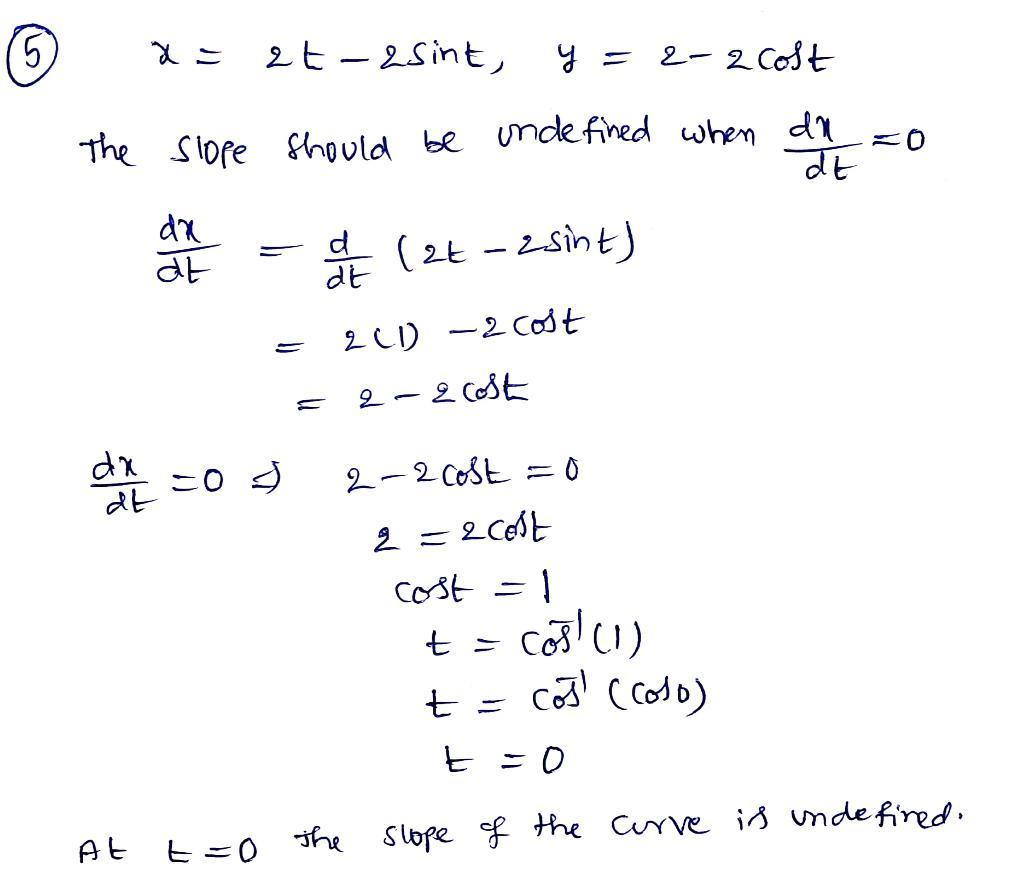 ⑤ x = 2t - 2sint, y = 2 - 2cost
The slope should be undefined when dx/dt = 0
dx/dt = d/dt (2t - 2sint)
= 2(1) - 2cost
= 2 - 2cost
dx/dt = 0 ⇒ 2 - 2cost = 0
2 = 2cost
cost = 1
t = cos⁻¹(1)
t = cos⁻¹(cos0)
t = 0
At t = 0 The slope of the curve is undefined.